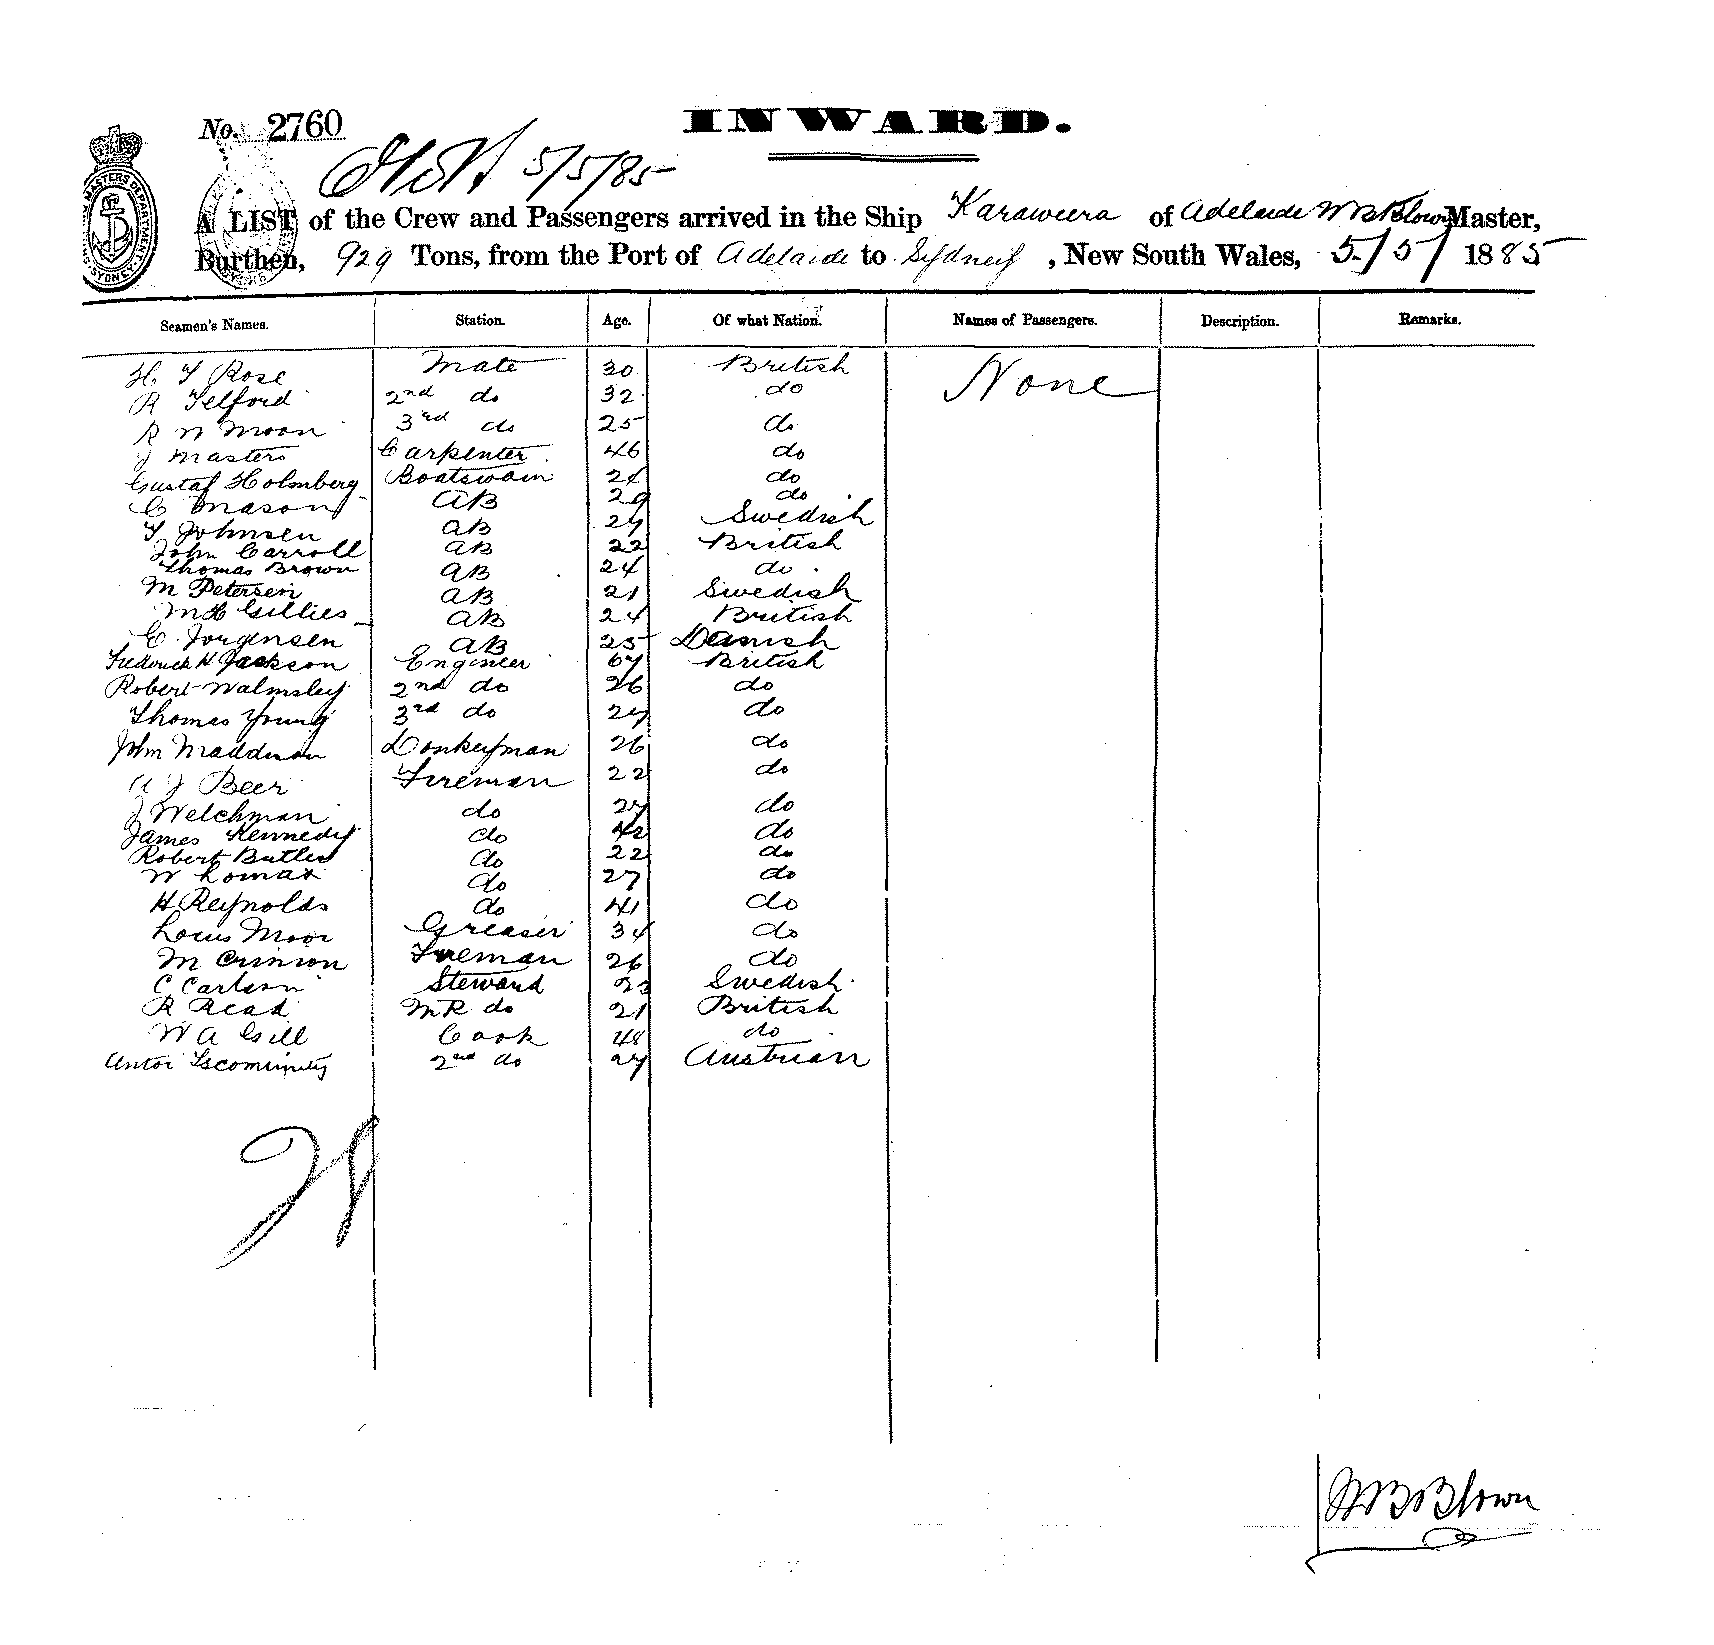 No. 2760
INWARD.
5/5/85
A LIST of the Crew and Passengers arrived in the Ship Karaweera of Adelaide W B Blown Master,
Burthen, 929 Tons, from the Port of Adelaide to Sydney, New South Wales, 5/5/ 1885
Seamen's Names. Station. Age. Of what Nation. Names of Passengers. Description. Remarks.
H T Rose Mate 30 British None
R Telford 2nd do 32 do
R N Moon 3rd do 25 do
J Masters Carpenter 46 do
Gustaf Holmberg Boatswain 24 do
C Mason AB 29 do
T Johnsen AB 27 Swedish
John Carroll AB 22 British
Thomas Brown AB 24 do
M Petersen AB 21 Swedish
Gillies AB 24 British
C. Jorgensen AB 25 Danish
Frederick H Jackson Engineer 67 British
Robert Walmsley 2nd do 26 do
Thomas Young 3rd do 27 do
John Maddison Donkeyman 26 do
A J Beer Fireman 22 do
J Welchman do 27 do
James Kennedy do 42 do
Robert Butler do 22 do
W Lomax do 27 do
H Reynolds do 41 do
Louis Moor Greaser 34 do
M Crinion Fireman 26 do
C Carlson Steward 23 Swedish
R Read MR do 21 British
W A Gill Cook 48 do
Antoi 2nd do 27 Austrian
W B Blown